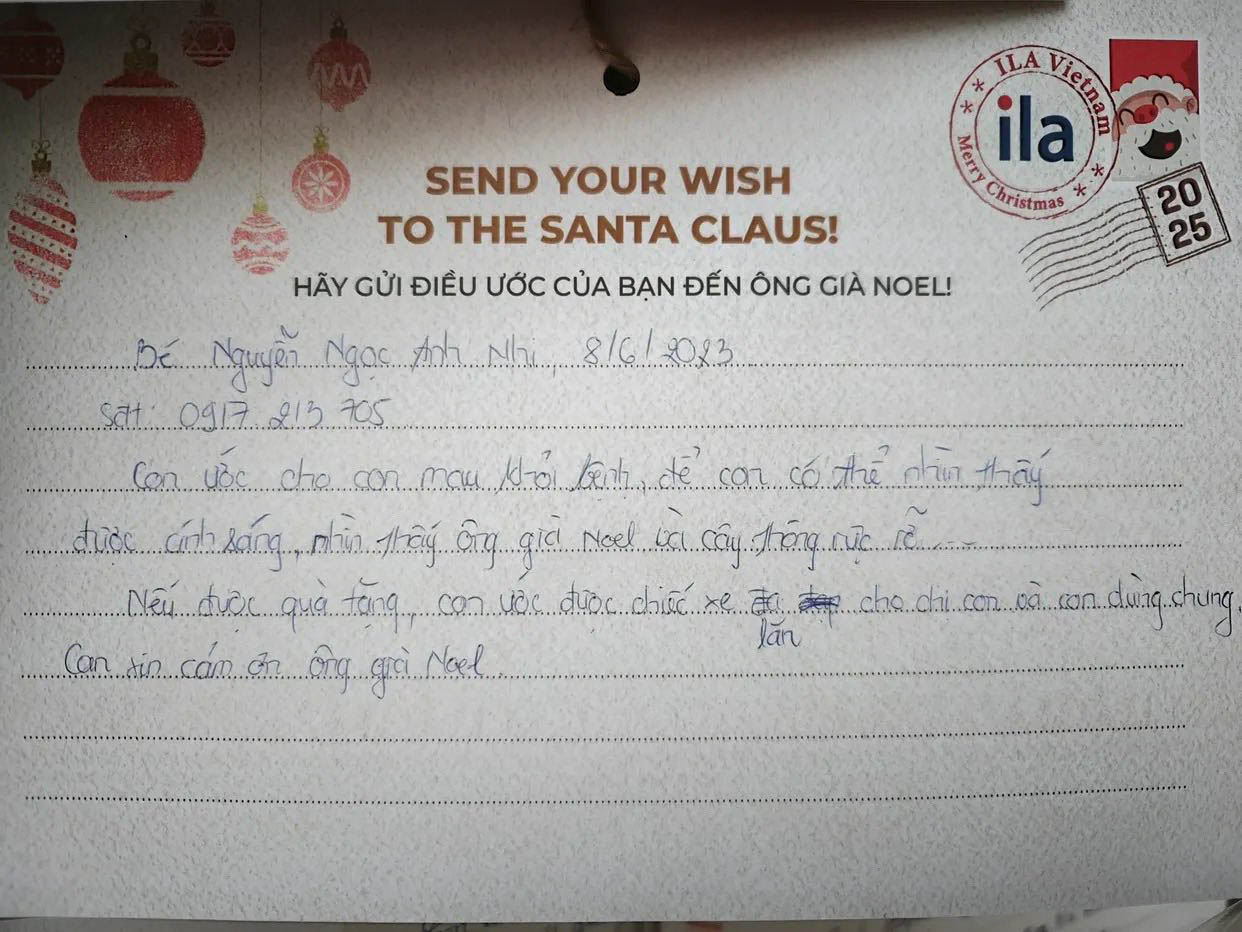 ILA Vietnam
ila
Merry Christmas
20
25
SEND YOUR WISH
TO THE SANTA CLAUS!
HÃY GỬI ĐIỀU ƯỚC CỦA BẠN ĐẾN ÔNG GIÀ NOEL!
Bé Nguyễn Ngọc Anh Nhi, 8/6/2023
Sđt: 0917 213 705
Con ước cho con mau khỏi bệnh, để con có thể nhìn thấy
được ánh sáng, nhìn thấy ông già Noel và cây thông rực rỡ....
Nếu được quà tặng, con ước được chiếc xe lăn cho chị con và con dùng chung.
Con xin cám ơn ông già Noel.